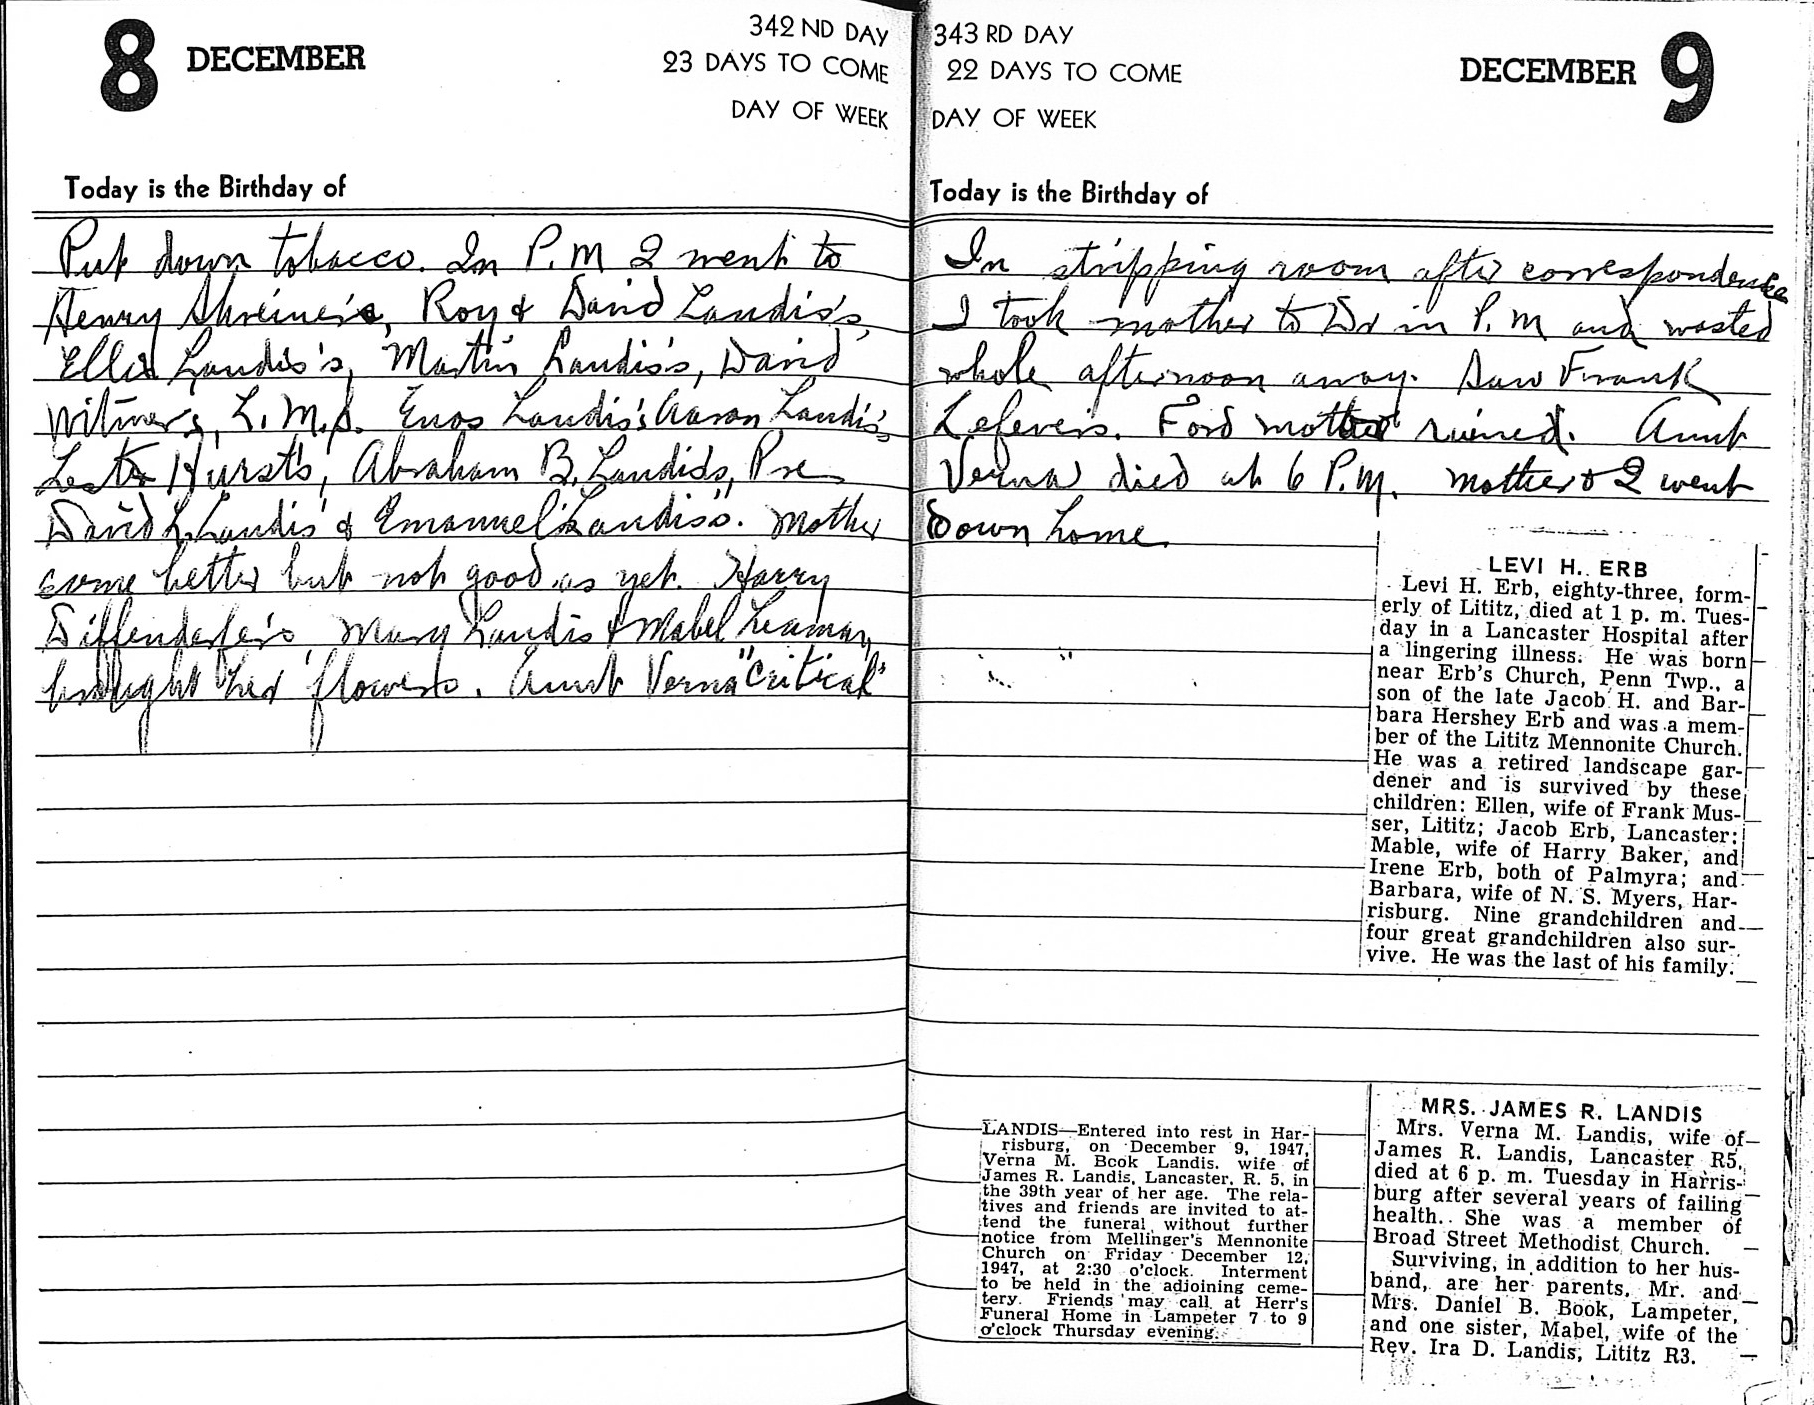 8 DECEMBER
342 ND DAY
23 DAYS TO COME
DAY OF WEEK
Today is the Birthday of
Put down tobacco. In P.M I went to
Henry Shreiner's, Roy & David Landis's,
Ellis Landis's, Martin Landis's, David
Witmer's, L. M. S. Enos Landis's Aaron Landis's,
Hurst's, Abraham B. Landis's, Pre
David L. Landis' & Emanuel Landis's. Mother
some better but not good as yet. Harry
Diffenderfer's, Mary Landis & Mabel Leaman
brought her flowers. Aunt Verna "critical"
343 RD DAY
22 DAYS TO COME
DAY OF WEEK
DECEMBER 9
Today is the Birthday of
In stripping room after correspondence
I took mother to Dr in P.M and wasted
whole afternoon away. Saw Frank
Lefever's. Ford motor ruined. Aunt
Verna died at 6 P.M. Mother & I went
down home.
LEVI H. ERB
Levi H. Erb, eighty-three, form-
erly of Lititz, died at 1 p. m. Tues-
day in a Lancaster Hospital after
a lingering illness. He was born
near Erb's Church, Penn Twp., a
son of the late Jacob H. and Bar-
bara Hershey Erb and was a mem-
ber of the Lititz Mennonite Church.
He was a retired landscape gar-
dener and is survived by these
children: Ellen, wife of Frank Mus-
ser, Lititz; Jacob Erb, Lancaster;
Mable, wife of Harry Baker, and
Irene Erb, both of Palmyra; and
Barbara, wife of N. S. Myers, Har-
risburg. Nine grandchildren and
four great grandchildren also sur-
vive. He was the last of his family.
LANDIS—Entered into rest in Har-
risburg, on December 9, 1947,
Verna M. Book Landis, wife of
James R. Landis, Lancaster, R. 5, in
the 39th year of her age. The rela-
tives and friends are invited to at-
tend the funeral without further
notice from Mellinger's Mennonite
Church on Friday December 12,
1947, at 2:30 o'clock. Interment
to be held in the adjoining ceme-
tery. Friends may call at Herr's
Funeral Home in Lampeter 7 to 9
o'clock Thursday evening.
MRS. JAMES R. LANDIS
Mrs. Verna M. Landis, wife of
James R. Landis, Lancaster R5,
died at 6 p. m. Tuesday in Harris-
burg after several years of failing
health. She was a member of
Broad Street Methodist Church.
Surviving, in addition to her hus-
band, are her parents, Mr. and
Mrs. Daniel B. Book, Lampeter,
and one sister, Mabel, wife of the
Rev. Ira D. Landis, Lititz R3.